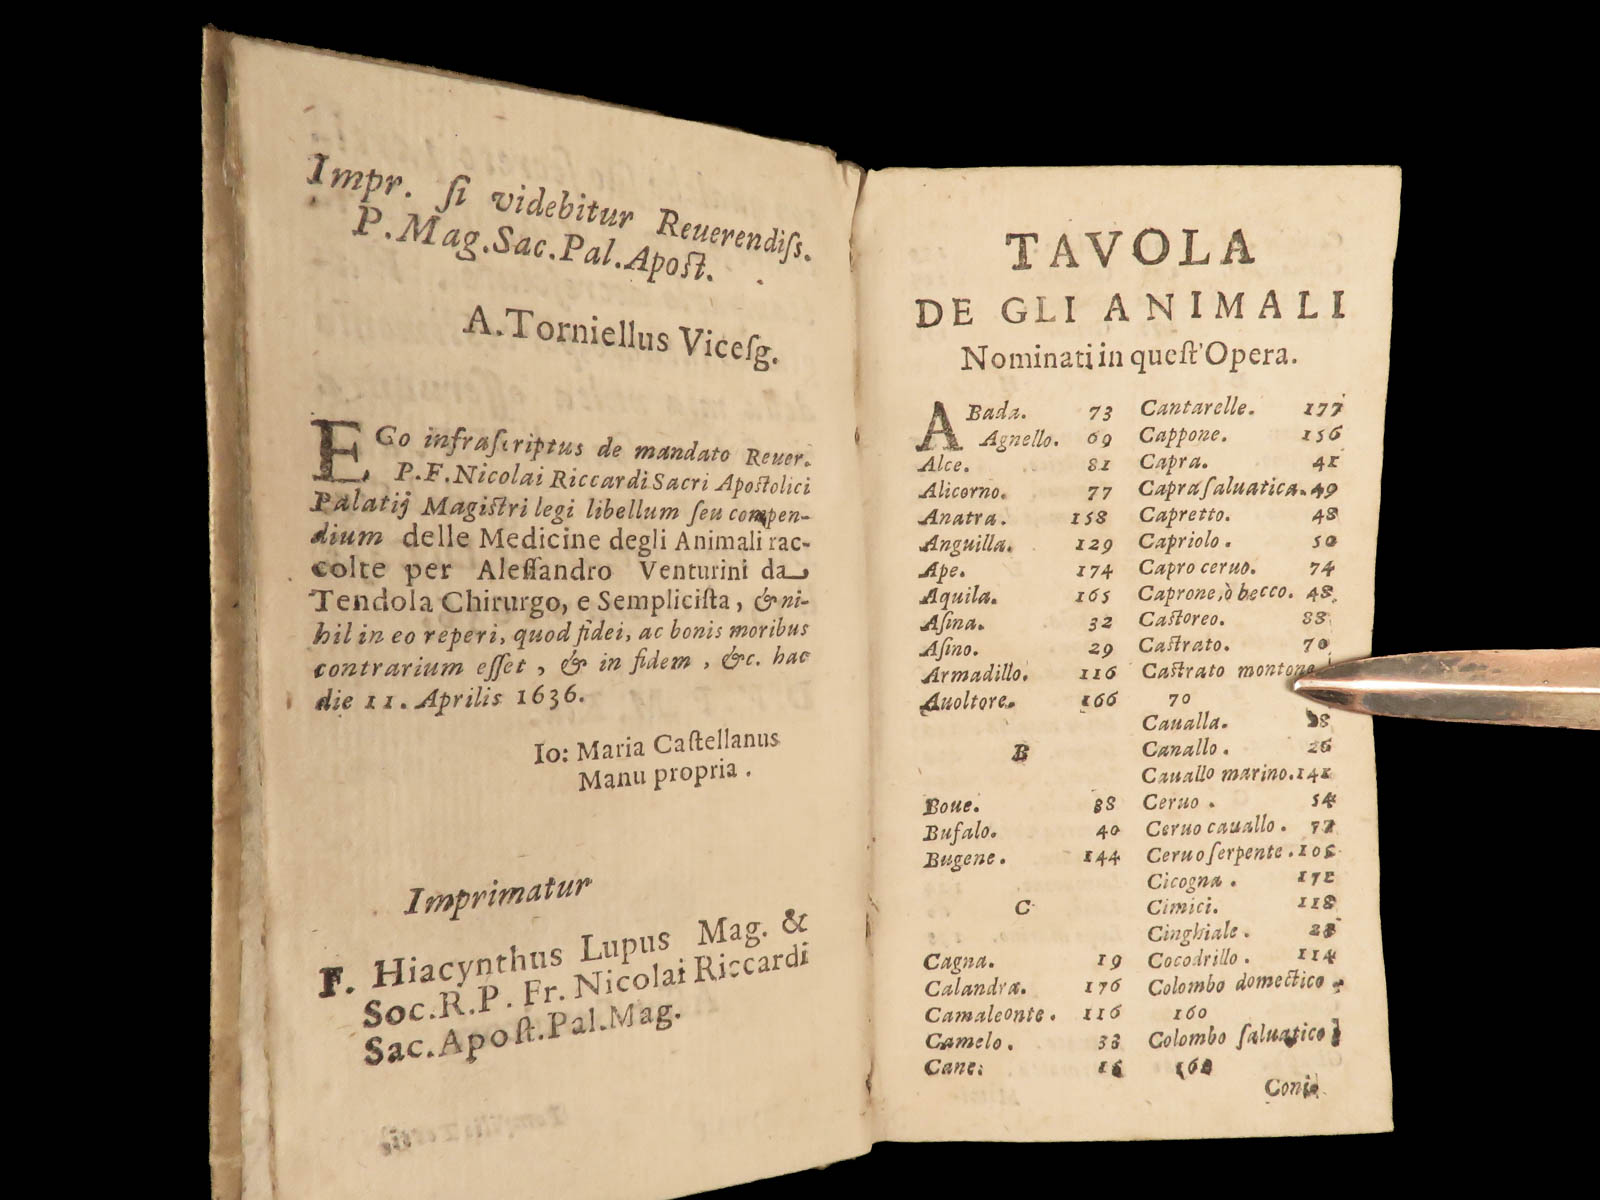 Impr. ſi videbitur Reuerendiſs.
P. Mag. Sac. Pal. Apoſt.
A. Torniellus Viceſg.
EGo infraſcriptus de mandato Reuer.
P. F. Nicolai Riccardi Sacri Apoſtolici
Palatij Magiſtri legi libellum ſeu compen-
dium delle Medicine degli Animali rac-
colte per Aleſſandro Venturini da
Tendola Chirurgo, e Sempliciſta, & ni-
hil in eo reperi, quod fidei, ac bonis moribus
contrarium eſſet, & in fidem, &c. hac
die 11. Aprilis 1636.
Io: Maria Caſtellanus
Manu propria.
Imprimatur
F. Hiacynthus Lupus Mag. &
Soc. R. P. Fr. Nicolai Riccardi
Sac. Apoſt. Pal. Mag.
TAVOLA
DE GLI ANIMALI
Nominati in queſt'Opera.
ABada. 73
Agnello. 69
Alce. 81
Alicorno. 77
Anatra. 158
Anguilla. 129
Ape. 174
Aquila. 165
Aſina. 32
Aſino. 29
Armadillo. 116
Auoltore. 166
B
Boue. 38
Bufalo. 40
Bugene. 144
C
Cagna. 19
Calandra. 176
Camaleonte. 116
Camelo. 33
Cane. 16
Cantarelle. 177
Cappone. 156
Capra. 41
Capra ſaluatica. 49
Capretto. 48
Capriolo. 50
Capro ceruo. 74
Caprone, ò becco. 48
Caſtoreo. 88
Caſtrato. 70
Caſtrato montone
70
Caualla. 28
Canallo. 26
Cauallo marino. 141
Ceruo. 54
Ceruo cauallo. 77
Ceruo ſerpente. 105
Cicogna. 171
Cimici. 118
Cinghiale. 23
Cocodrillo. 114
Colombo domeſtico.
160
Colombo ſaluatico
160
Coni-